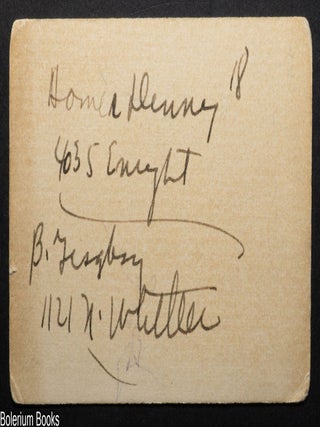 Homer Denny 18
4635 Enright
B.
1121 N. Whittier
Bolerium Books